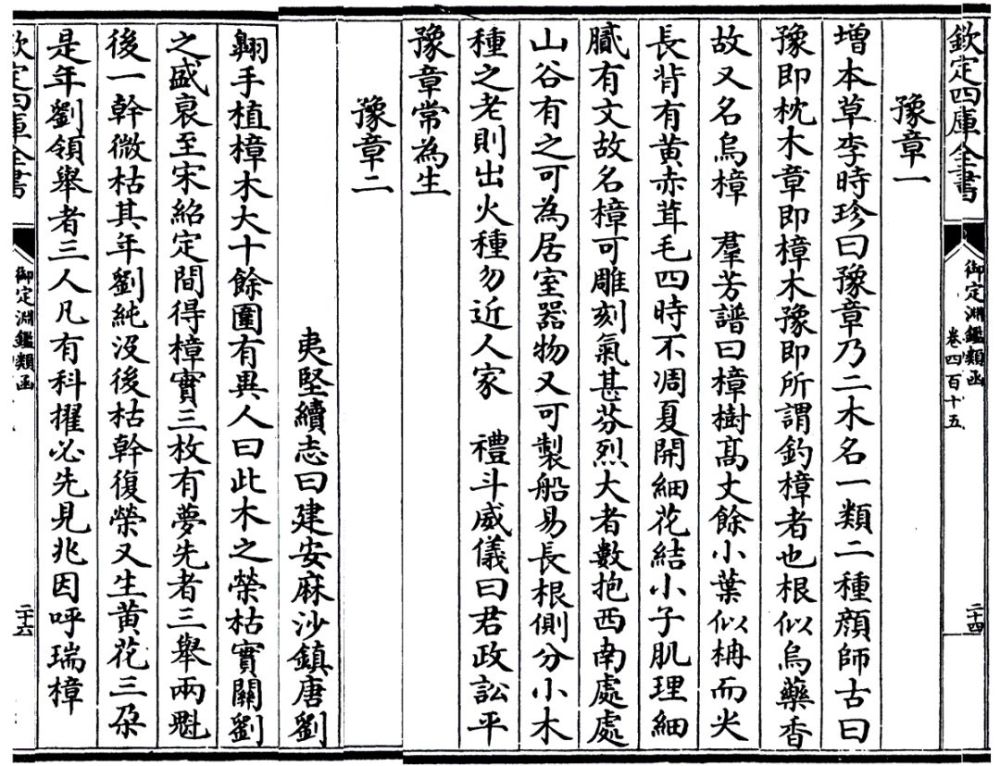 欽定四庫全書
御定淵鑑類函
卷四百十五
二十四
豫章一
增本草李時珍曰豫章乃二木名一類二種顔師古曰
豫即枕木章即樟木豫即所謂釣樟者也根似烏藥香
故又名烏樟　羣芳譜曰樟樹髙丈餘小葉似柟而尖
長背有黄赤茸毛四時不凋夏開細花結小子肌理細
膩有文故名樟可雕刻氣甚芬烈大者數抱西南處處
山谷有之可為居室器物又可製船易長根側分小木
種之老則出火種勿近人家　禮斗威儀曰君政訟平
豫章常為生
豫章二
夷堅續志曰建安麻沙鎮唐劉
翱手植樟木大十餘圍有異人曰此木之榮枯實關劉
之盛衰至宋紹定間得樟實三枚有夢先者三舉兩魁
後一幹微枯其年劉純沒後枯幹復榮又生黄花三朶
是年劉領舉者三人凡有科擢必先見兆因呼瑞樟
欽定四庫全書
御定淵鑑類函
二十六